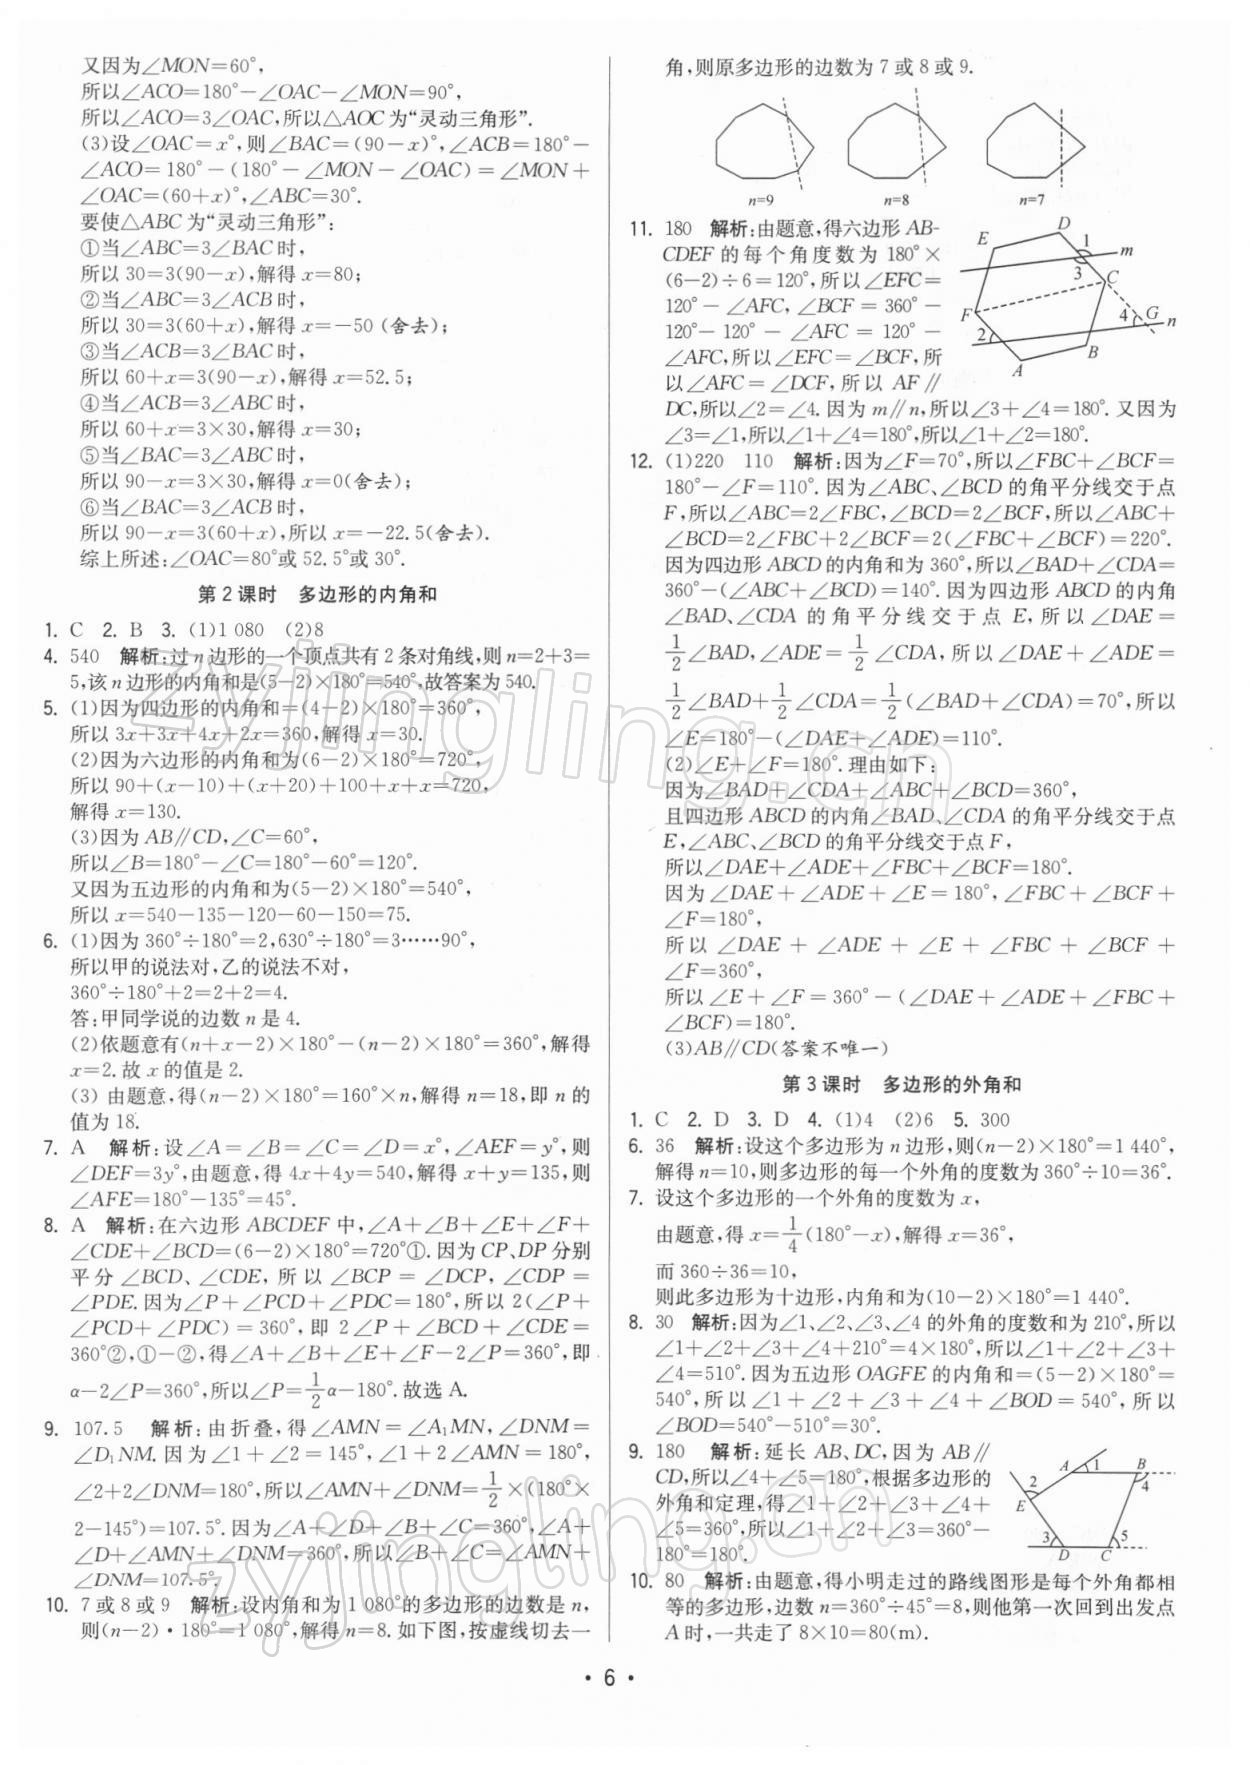 又因为∠MON=60°,
所以∠ACO=180°-∠OAC-∠MON=90°,
所以∠ACO=3∠OAC,所以△AOC为“灵动三角形”.
(3)设∠OAC=x°,则∠BAC=(90-x)°,∠ACB=180°-
∠ACO=180°-(180°-∠MON-∠OAC)=∠MON+
∠OAC=(60+x)°,∠ABC=30°.
要使△ABC为“灵动三角形”:
①当∠ABC=3∠BAC时,
所以30=3(90-x),解得x=80;
②当∠ABC=3∠ACB时,
所以30=3(60+x),解得x=-50(舍去);
③当∠ACB=3∠BAC时,
所以60+x=3(90-x),解得x=52.5;
④当∠ACB=3∠ABC时,
所以60+x=3×30,解得x=30;
⑤当∠BAC=3∠ABC时,
所以90-x=3×30,解得x=0(舍去);
⑥当∠BAC=3∠ACB时,
所以90-x=3(60+x),所以x=-22.5(舍去).
综上所述:∠OAC=80°或52.5°或30°.
第2课时 多边形的内角和
1. C 2. B 3. (1)1 080 (2)8
4. 540 解析:过n边形的一个顶点共有2条对角线,则n=2+3=
5,该n边形的内角和是(5-2)×180°=540°,故答案为540.
5. (1)因为四边形的内角和=(4-2)×180°=360°,
所以3x+3x+4x+2x=360,解得x=30.
(2)因为六边形的内角和为(6-2)×180°=720°,
所以90+(x-10)+(x+20)+100+x+x=720,
解得x=130.
(3)因为AB∥CD,∠C=60°,
所以∠B=180°-∠C=180°-60°=120°.
又因为五边形的内角和为(5-2)×180°=540°,
所以x=540-135-120-60-150=75.
6. (1)因为360°÷180°=2,630°÷180°=3……90°,
所以甲的说法对,乙的说法不对,
360°÷180°+2=2+2=4.
答:甲同学说的边数n是4.
(2)依题意有(n+x-2)×180°-(n-2)×180°=360°,解得
x=2.故x的值是2.
(3)由题意,得(n-2)×180°=160°×n,解得n=18,即n的
值为18.
7. A 解析:设∠A=∠B=∠C=∠D=x°,∠AEF=y°,则
∠DEF=3y°,由题意,得4x+4y=540,解得x+y=135,则
∠AFE=180°-135°=45°.
8. A 解析:在六边形ABCDEF中,∠A+∠B+∠E+∠F+
∠CDE+∠BCD=(6-2)×180°=720°①.因为CP、DP分别
平分∠BCD、∠CDE,所以∠BCP=∠DCP,∠CDP=
∠PDE.因为∠P+∠PCD+∠PDC=180°,所以2(∠P+
∠PCD+∠PDC)=360°,即2∠P+∠BCD+∠CDE=
360°②,①-②,得∠A+∠B+∠E+∠F-2∠P=360°,即
α-2∠P=360°,所以∠P=1/2α-180°.故选A.
9. 107.5 解析:由折叠,得∠AMN=∠A₁MN,∠DNM=
∠D₁NM.因为∠1+∠2=145°,∠1+2∠AMN=180°,
∠2+2∠DNM=180°,所以∠AMN+∠DNM=1/2×(180°×
2-145°)=107.5°.因为∠A+∠D+∠B+∠C=360°,∠A+
∠D+∠AMN+∠DNM=360°,所以∠B+∠C=∠AMN+
∠DNM=107.5°.
10. 7或8或9 解析:设内角和为1 080°的多边形的边数是n,
则(n-2)·180°=1 080°,解得n=8.如下图,按虚线切去一
角,则原多边形的边数为7或8或9.
n=9 n=8 n=7
11. 180 解析:由题意,得六边形AB-
CDEF的每个角度数为180°×
(6-2)÷6=120°,所以∠EFC=
120°-∠AFC,∠BCF=360°-
120°-120°-∠AFC=120°-
∠AFC,所以∠EFC=∠BCF,所
以∠AFC=∠DCF,所以AF∥
DC,所以∠2=∠4.因为m∥n,所以∠3+∠4=180°.又因为
∠3=∠1,所以∠1+∠4=180°,所以∠1+∠2=180°.
E D 1 m 3 C F 4 G n 2 B A
12. (1)220 110 解析:因为∠F=70°,所以∠FBC+∠BCF=
180°-∠F=110°.因为∠ABC、∠BCD的角平分线交于点
F,所以∠ABC=2∠FBC,∠BCD=2∠BCF,所以∠ABC+
∠BCD=2∠FBC+2∠BCF=2(∠FBC+∠BCF)=220°.
因为四边形ABCD的内角和为360°,所以∠BAD+∠CDA=
360°-(∠ABC+∠BCD)=140°.因为四边形ABCD的内角
∠BAD、∠CDA的角平分线交于点E,所以∠DAE=
1/2∠BAD,∠ADE=1/2∠CDA,所以∠DAE+∠ADE=
1/2∠BAD+1/2∠CDA=1/2(∠BAD+∠CDA)=70°,所以
∠E=180°-(∠DAE+∠ADE)=110°.
(2)∠E+∠F=180°.理由如下:
因为∠BAD+∠CDA+∠ABC+∠BCD=360°,
且四边形ABCD的内角∠BAD、∠CDA的角平分线交于点
E,∠ABC、∠BCD的角平分线交于点F,
所以∠DAE+∠ADE+∠FBC+∠BCF=180°.
因为∠DAE+∠ADE+∠E=180°,∠FBC+∠BCF+
∠F=180°,
所以∠DAE+∠ADE+∠E+∠FBC+∠BCF+
∠F=360°,
所以∠E+∠F=360°-(∠DAE+∠ADE+∠FBC+
∠BCF)=180°.
(3)AB∥CD(答案不唯一)
第3课时 多边形的外角和
1. C 2. D 3. D 4. (1)4 (2)6 5. 300
6. 36 解析:设这个多边形为n边形,则(n-2)×180°=1 440°,
解得n=10,则多边形的每一个外角的度数为360°÷10=36°.
7. 设这个多边形的一个外角的度数为x,
由题意,得x=1/4(180°-x),解得x=36°,
而360÷36=10,
则此多边形为十边形,内角和为(10-2)×180°=1 440°.
8. 30 解析:因为∠1、∠2、∠3、∠4的外角的度数和为210°,所以
∠1+∠2+∠3+∠4+210°=4×180°,所以∠1+∠2+∠3+
∠4=510°.因为五边形OAGFE的内角和=(5-2)×180°=
540°,所以∠1+∠2+∠3+∠4+∠BOD=540°,所以
∠BOD=540°-510°=30°.
9. 180 解析:延长AB、DC,因为AB∥
CD,所以∠4+∠5=180°,根据多边形的
外角和定理,得∠1+∠2+∠3+∠4+
∠5=360°,所以∠1+∠2+∠3=360°-
180°=180°.
A 1 B 2 4 E 3 5 D C
10. 80 解析:由题意,得小明走过的路线图形是每个外角都相
等的多边形,边数n=360°÷45°=8,则他第一次回到出发点
A时,一共走了8×10=80(m).
• 6 •
zyjingling.cn
zyjingling.cn